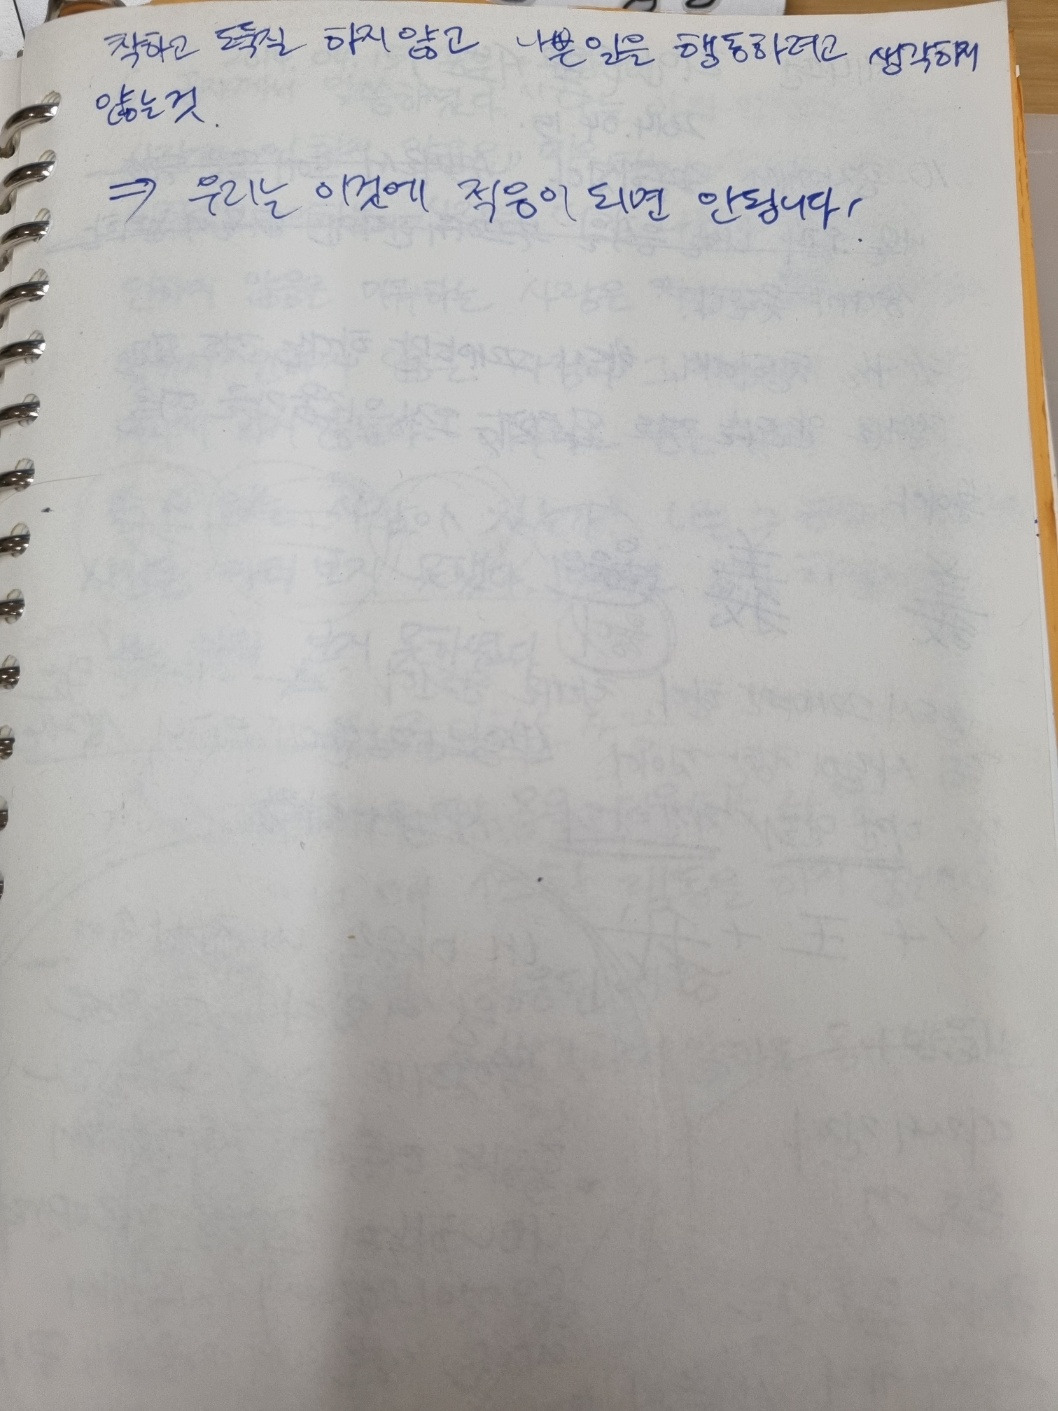 착하고 도둑질 하지 않고 나쁜일을 행동하려고 생각하지
않는것.
⇒ 우리는 이것에 적응이 되면 안됩니다.